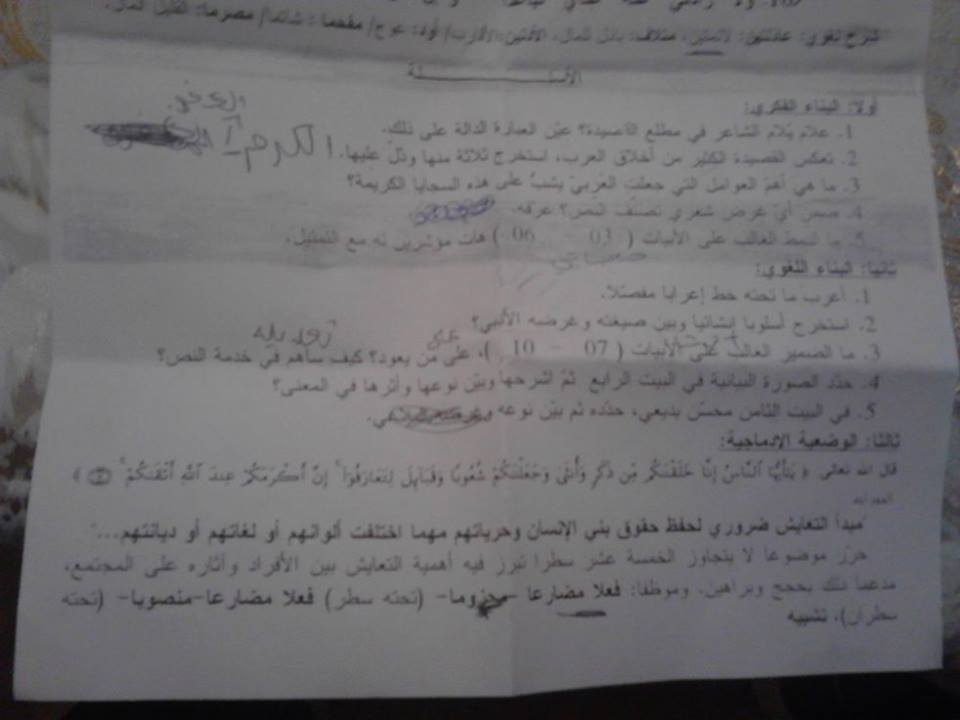 شرح لغوي: عاذلتين: لائمتين، متلاف: باذل للمال، الأدنين: الأقارب/ أود: عوج/ مفحما: شاتما/ مصرما: القليل المال.
الأسئلة
أولا: البناء الفكري:
1. علام يُلام الشاعر في مطلع القصيدة؟ عيّن العبارة الدالة على ذلك.
2. تعكس القصيدة الكثير من أخلاق العرب، استخرج ثلاثة منها ودلّ عليها. الكرم
3. ما هي أهمّ العوامل التي جعلت العربيّ يشبّ على هذه السجايا الكريمة؟
4. ضمن أيّ غرض شعري تصنّف النص؟ عرفه.
5. ما النمط الغالب على الأبيات ( 03 - 06 ) هات مؤشرين له مع التمثيل.
ثانيا: البناء اللغوي:
1. أعرب ما تحته خط إعرابا مفصّلا.
2. استخرج أسلوبا إنشائيا وبين صيغته وغرضه الأدبي؟
3. ما الضمير الغالب على الأبيات ( 07 - 10 )، على من يعود؟ كيف ساهم في خدمة النص؟
4. حدّد الصورة البيانية في البيت الرابع ثمّ اشرحها وبيّن نوعها وأثرها في المعنى؟
5. في البيت الثامن محسّن بديعي، حدّده ثم بيّن نوعه
ثالثا: الوضعية الإدماجية:
قال الله تعالى ﴿ يَٰٓأَيُّهَا ٱلنَّاسُ إِنَّا خَلَقْنَٰكُم مِّن ذَكَرٍ وَأُنثَىٰ وَجَعَلْنَٰكُمْ شُعُوبًا وَقَبَآئِلَ لِتَعَارَفُوٓا۟ إِنَّ أَكْرَمَكُمْ عِندَ ٱللَّهِ أَتْقَىٰكُمْ ﴾
الحجرات
"مبدأ التعايش ضروري لحفظ حقوق بني الإنسان وحرياتهم مهما اختلفت ألوانهم أو لغاتهم أو دياناتهم..."
حرّر موضوعا لا يتجاوز الخمسة عشر سطرا تبرز فيه أهمية التعايش بين الأفراد وآثاره على المجتمع،
مدعما ذلك بحجج وبراهين، وموظفا: فعلا مضارعا -مجزوما- (تحته سطر) فعلا مضارعا-منصوبا- (تحته
سطران)، تشبيه